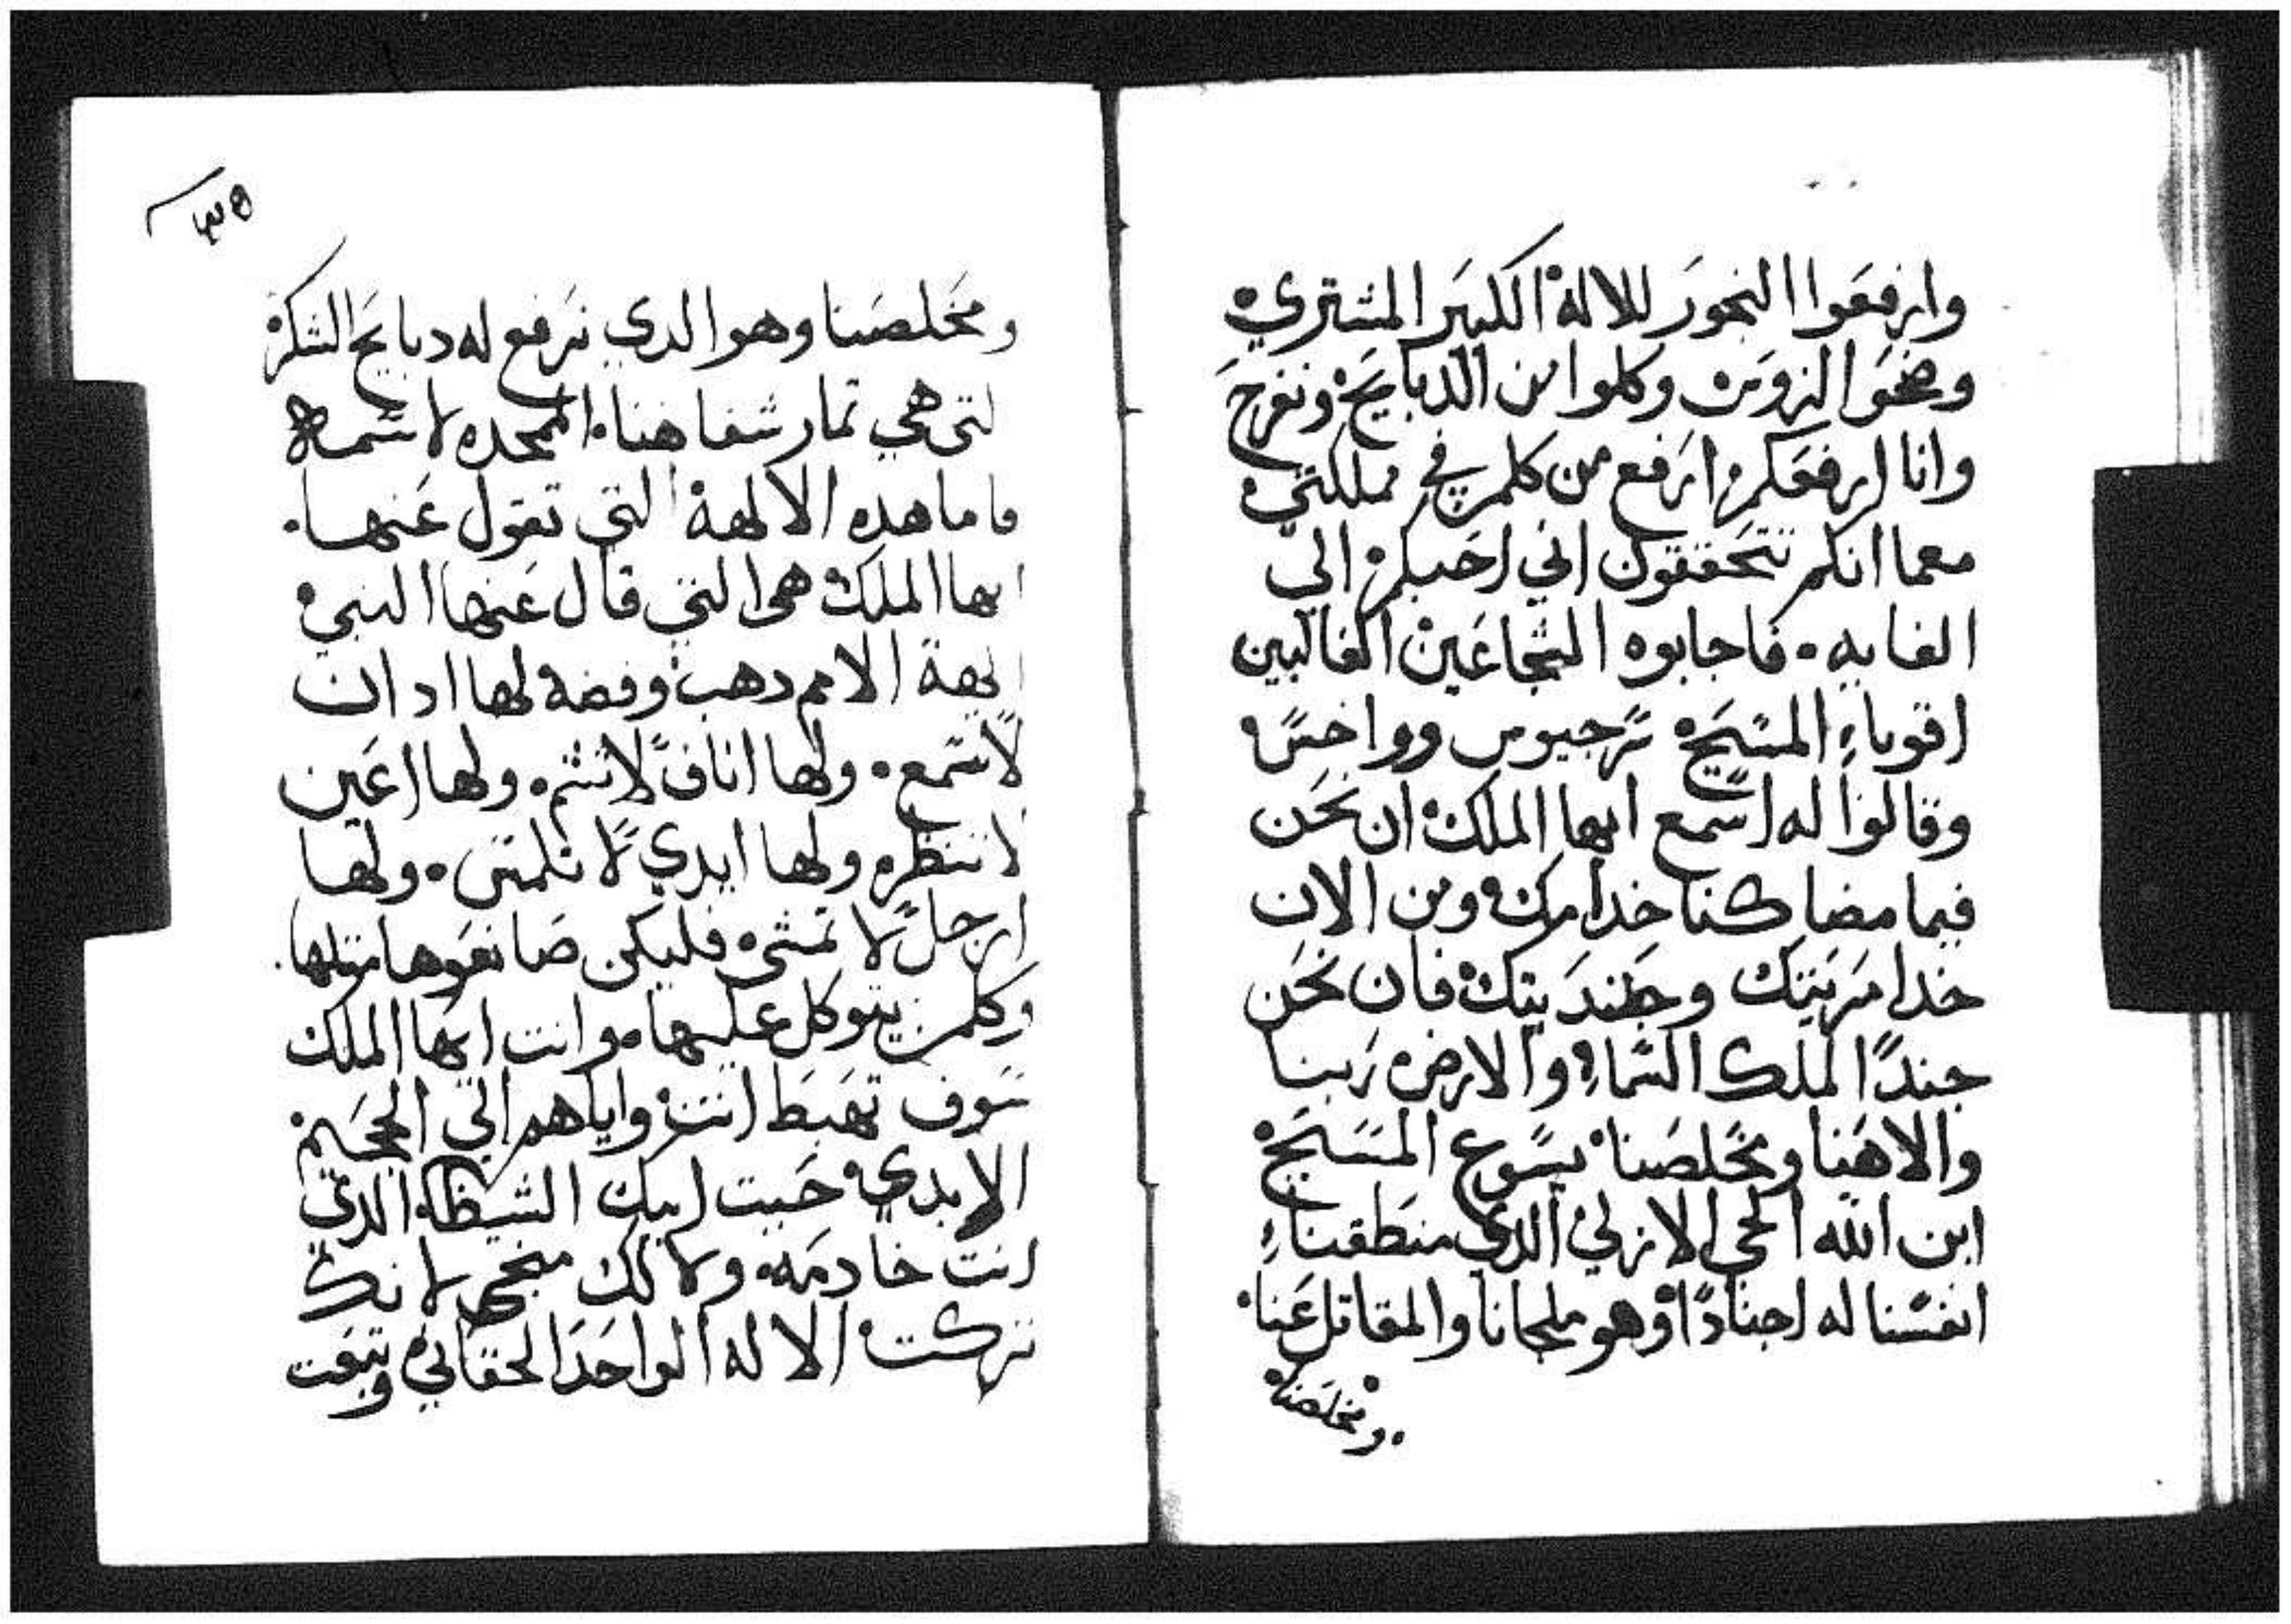 وارفعوا البخور للاله الكبير المشتري
وضحوا لزوس وكلوا من الدبايح ونفرح
وانا ارفعكم ارفع من كلمن في مملكتي
معما انكم تتحققون اني احبكم الي
الغايه. فاجابوه الشجاعين الغالبين
اقوياء المسيح سرجيوس وواخس
وقالوا له اسمع ايها الملك ان نحن
فيما مضا كنا خدامك ومن الان
خدامربتك وجندبتك فان نحن
جندًا لملك السماء والارض ربنا
والاهنا ومخلصنا يسوع المسيح
ابن الله الحي الازلي الدي منطقنا
انفسنا له اجنادًا وهو ملجانا والمقاتل عنا
ومخلصنا
٣٥
ومخلصنا وهو الدي نرفع له دبايح الشكر
لتي هي تمار شفاهنا. الممجده لاسمه
فاما هده الالهة التي تقول عنها.
ايها الملك هي التي قال عنها النبي
الهة الامم دهب وفضه لها ادان
لا تسمع. ولها اناف لا تشم. ولها اعين
لا تنظر. ولها ايدي لا تلمس. ولها
ارجل لا تمشي. فليكن صانعوها متلها.
وكلمن يتوكل عليها. وانت ايها الملك
سوف تهبط انت واياهم الي الجحيم
الابدي حيت ابيك الشيطان الدي
انت خادمه. ولا لك منجي لانك
تركت الاله الواحد الحقاني وتبعت